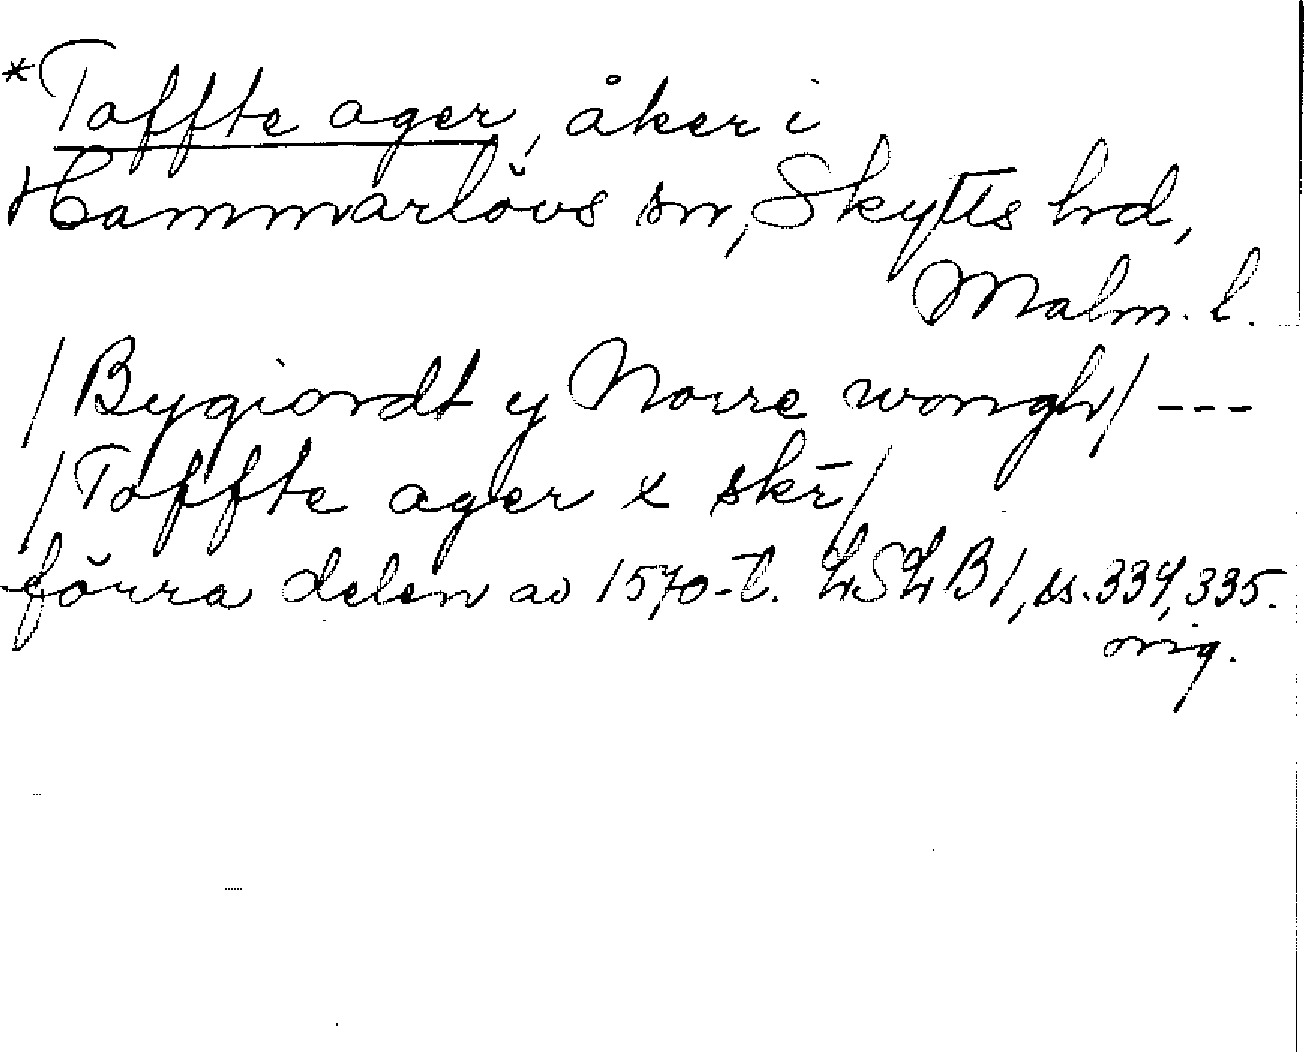 *Toffte ager, åker i
Hammarlövs sn, Skytts hd,
Malm. l.
/Bygiordt y Norre wongh/ ---
/Toffte ager x skr̄/
förra delen av 1570-t. LSLB1, ss. 334, 335.
orig.